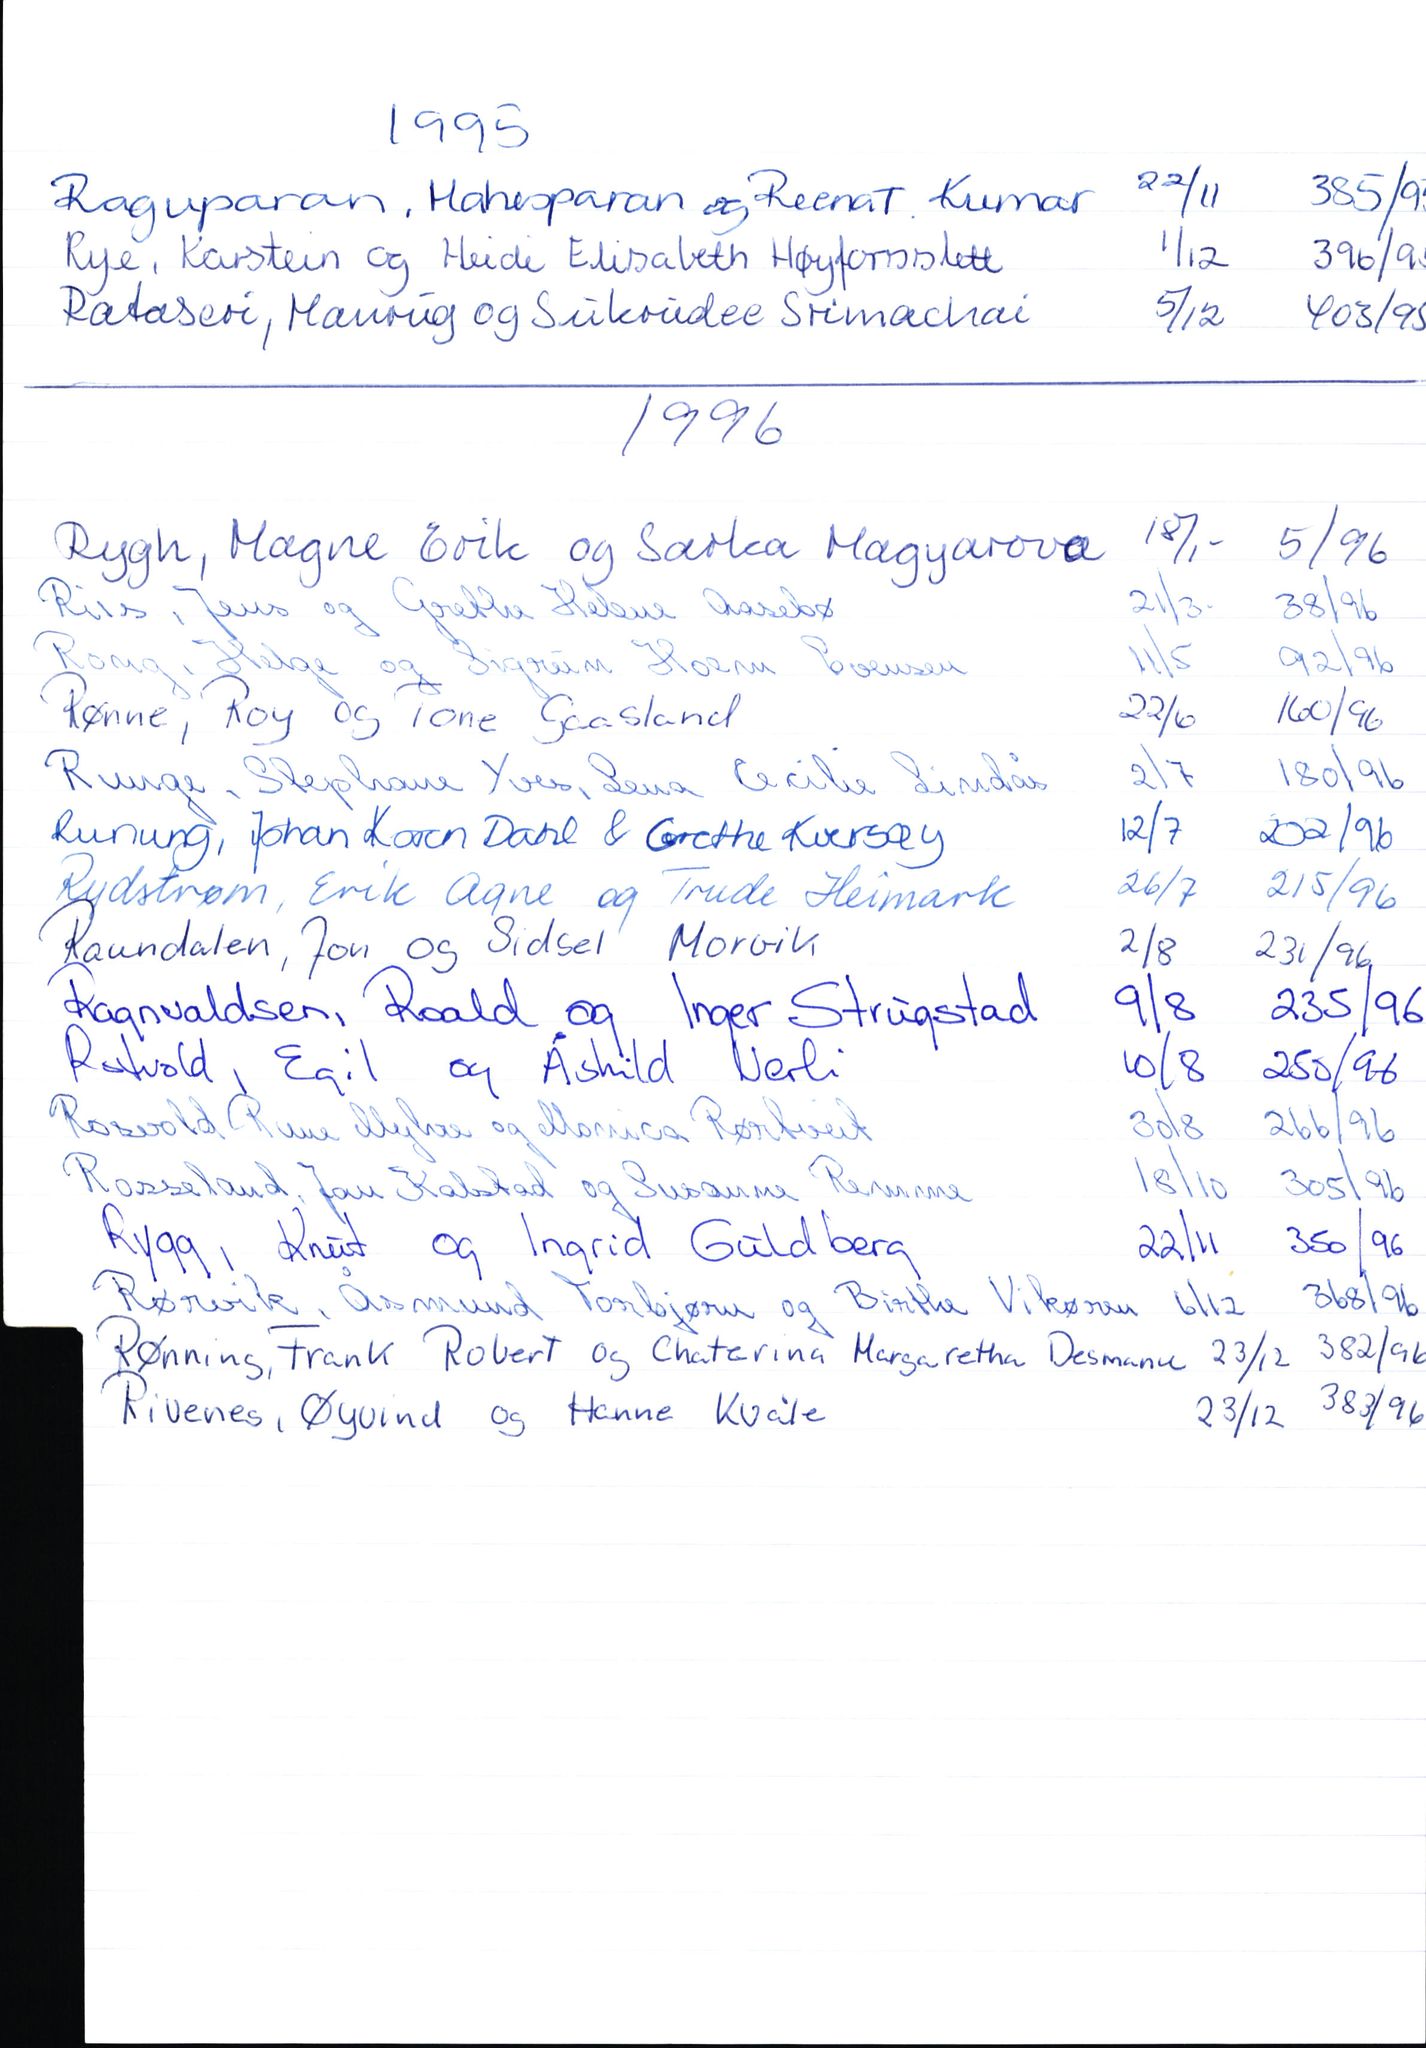 1995
Raguparan, Mahesparan og Reenat. Kumar 22/11 385/95
Rye, Karstein og Heidi Elisabeth Høyforsslett 1/12 396/95
Rataseri, Manrug og Sukrudee Srimachai 5/12 403/95
1996
Rygh, Magne Erik og Sarka Magyarova 18/1- 5/96
Riis, Jens og Grethe Helene Aasebø 21/3- 38/96
Rong, Helge og Sigrun Evensen 11/5 92/96
Rønne, Roy og Tone Gaasland 22/6 160/96
Runge, Stephane Yves, Lena Cecilie Lindås 2/7 180/96
Runung, Johan Koren Dahl & Grethe Kversøy 12/7 202/96
Rydstrøm, Erik Agne og Trude Heimark 26/7 215/96
Raundalen, Jon og Sidsel Morvik 2/8 231/96
Ragnvaldsen, Roald og Inger Strugstad 9/8 235/96
Rotvold, Egil og Åshild Nerli 10/8 250/96
Rosvold Rune Myhre og Monica Rørtveit 30/8 266/96
Rosseland, Jan Kalstad og Susanne Remme 18/10 305/96
Rygg, Knut og Ingrid Guldberg 22/11 350/96
Rørvik, Åsmund Torbjørn og Birthe Vikøren 6/12 368/96
Rønning, Frank Robert og Chaterina Margaretha Desmanu 23/12 382/96
Rivenes, Øyvind og Hanne Kvåle 23/12 383/96